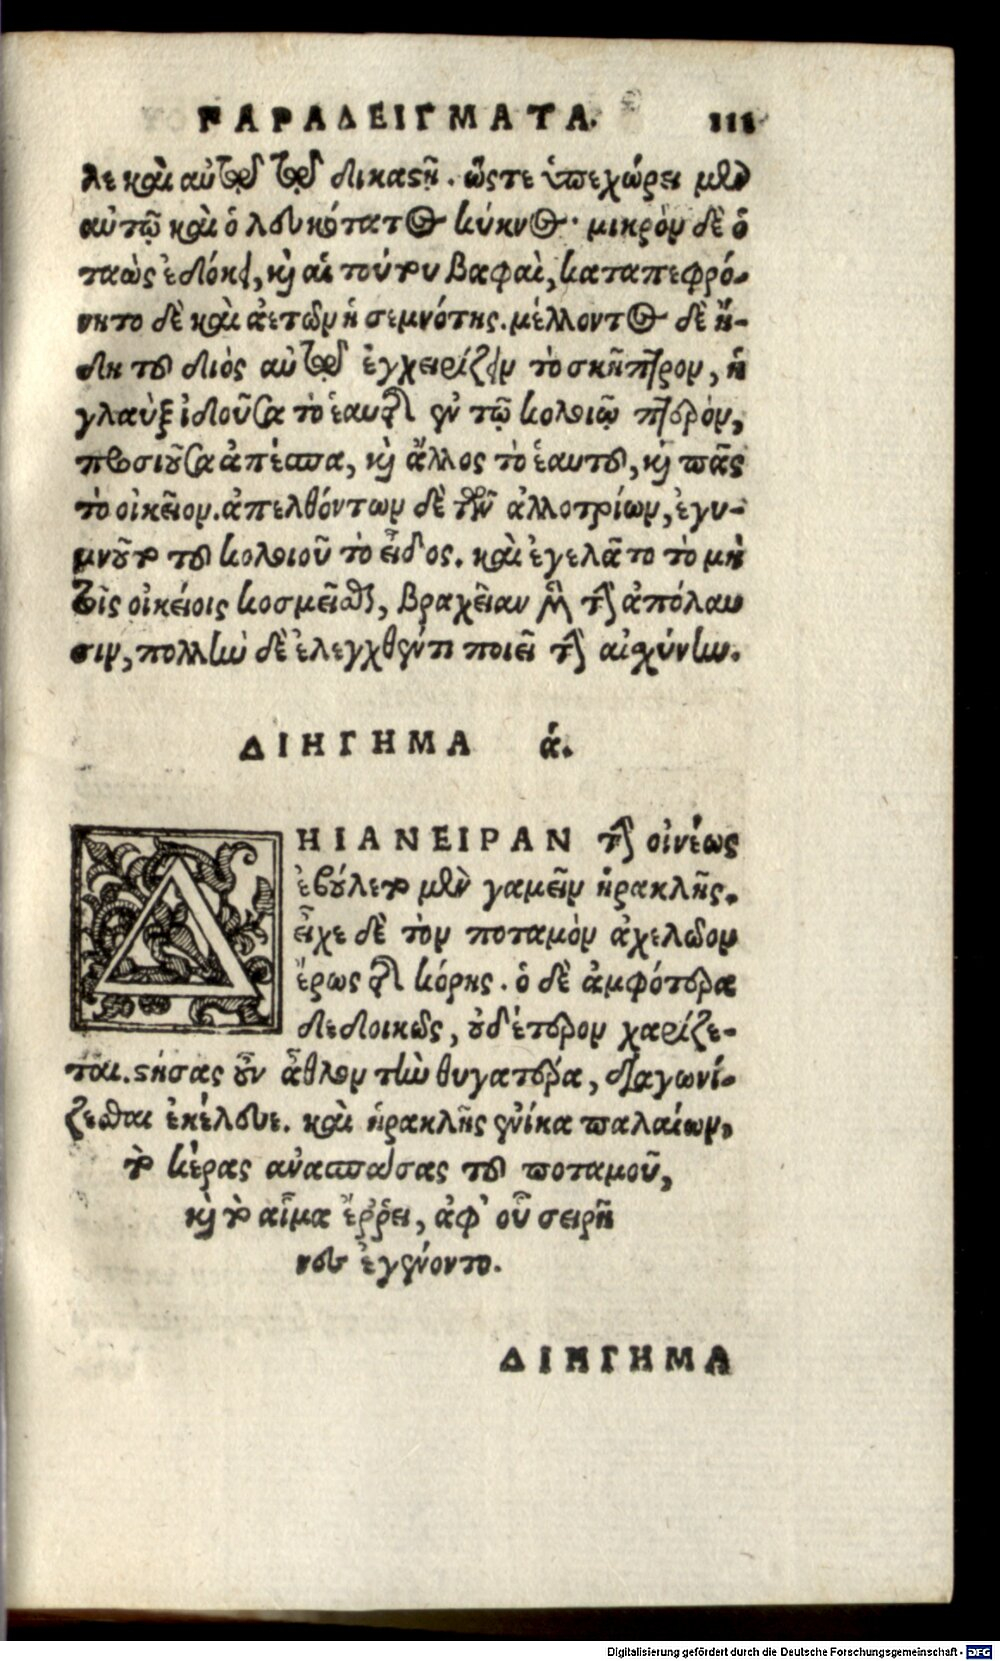 ΠΑΡΑΔΕΙΓΜΑΤΑ. 111
λε καὶ αὐτῷ τῷ δικαστῇ. ὥστε ὑπεχώρει μὲν
αὐτῷ καὶ ὁ λευκότατος κύκνος· μικρὸν δὲ ὁ
ταὼς ἐδόκει, καὶ αἱ τούτου βαφαὶ, καταπεφρό-
νητο δὲ καὶ ἀετῶν ἡ σεμνότης. μέλλοντος δὲ ἤ-
δη τοῦ διὸς αὐτῷ ἐγχειρίζειν τὸ σκῆπτρον, ἡ
γλαὺξ ἰδοῦσα τὸ ἑαυτῆς ἐν τῷ κολοιῷ πτερὸν,
προσιοῦσα ἀπέσπα, καὶ ἄλλος τὸ ἑαυτοῦ, καὶ πᾶς
τὸ οἰκεῖον. ἀπελθόντων δὲ τῶν ἀλλοτρίων, ἐγυ-
μνοῦτο τοῦ κολοιοῦ τὸ εἶδος. καὶ ἐγελᾶτο τὸ μὴ
τοῖς οἰκείοις κοσμεῖσθαι, βραχεῖαν μὲν τὴν ἀπόλαυ
σιν, πολλὴν δὲ ἐλεγχθέντι ποιεῖ τὴν αἰσχύνην.
ΔΙΗΓΗΜΑ ά.
ΔΗΙΑΝΕΙΡΑΝ τὴν οἰνέως
ἐβούλετο μὲν γαμεῖν ἡρακλῆς.
εἶχε δὲ τὸν ποταμὸν ἀχελῶον
ἔρως τῆς κόρης. ὁ δὲ ἀμφότερα
δεδοικὼς, οὐδ' ἑτέρον χαρίζε-
ται. στήσας οὖν ἆθλον τὴν θυγατέρα, διαγωνί-
ζεσθαι ἐκέλευε. καὶ ἡρακλῆς ἐνίκα παλαίων,
τὸ κέρας ἀνασπάσας τοῦ ποταμοῦ,
καὶ τὸ αἷμα ἔρρει, ἀφ' οὗ σειρῆ
νες ἐγένοντο.
ΔΙΗΓΗΜΑ
Digitalisierung gefördert durch die Deutsche Forschungsgemeinschaft - DFG